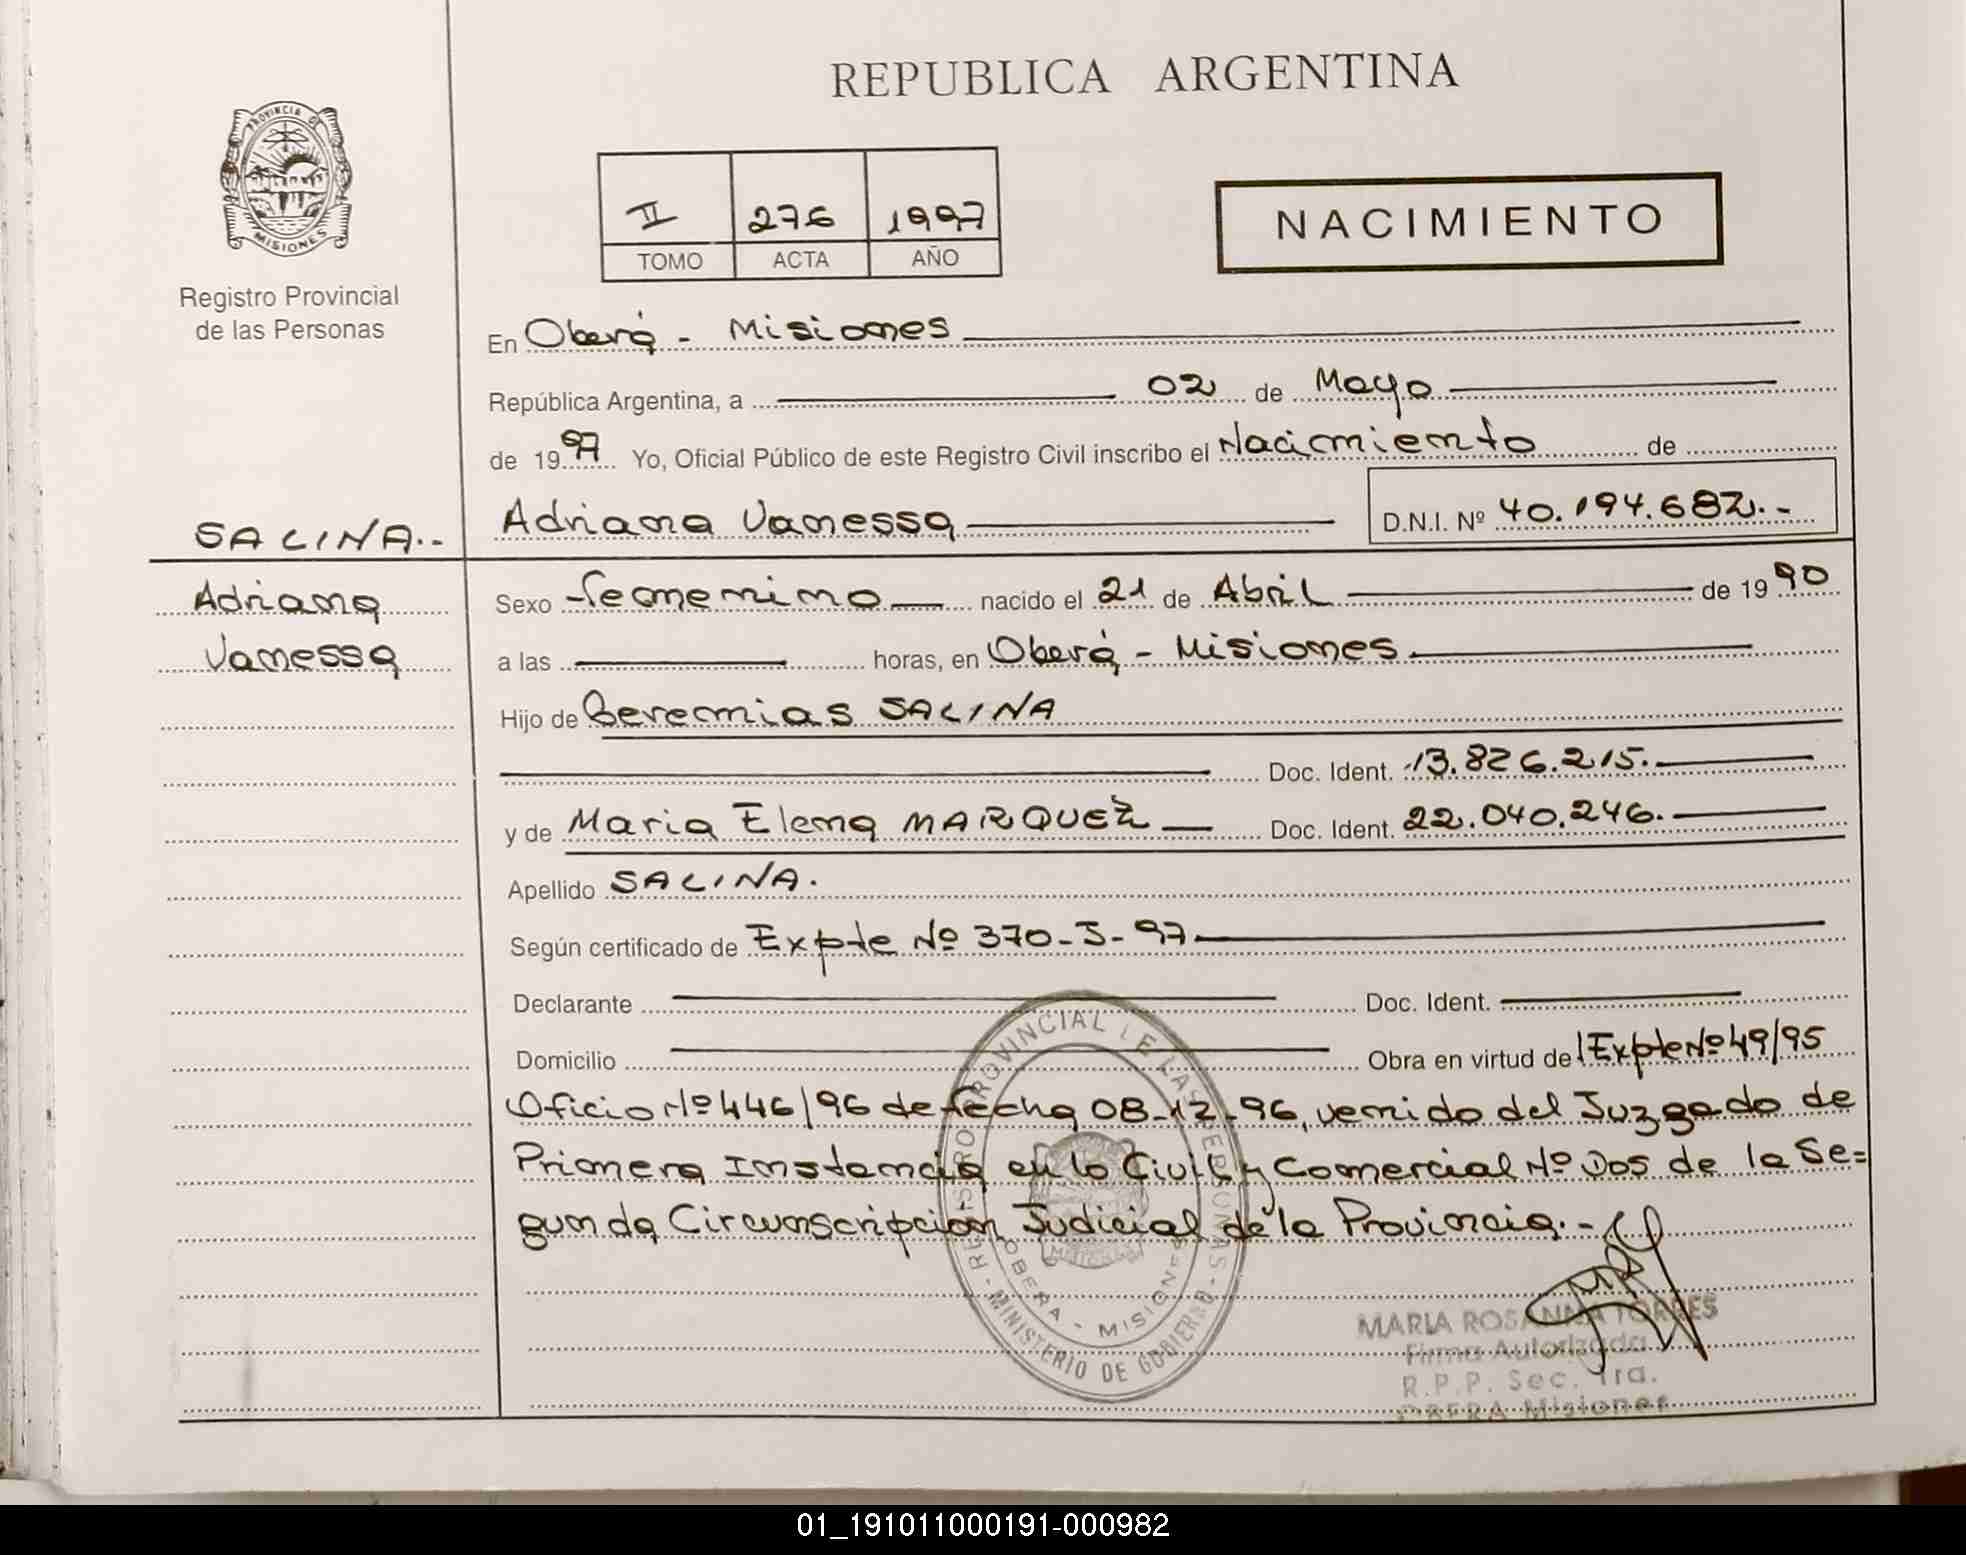 REPUBLICA ARGENTINA
PROVINCIA DE
MISIONES
Registro Provincial
de las Personas
II 276 1997
TOMO ACTA AÑO
NACIMIENTO
En Oberá - Misiones
República Argentina, a 02 de Mayo
de 1997 Yo, Oficial Público de este Registro Civil inscribo el Nacimiento de
SALINA.-
Adriana Vanessa D.N.I. Nº 40.194.682.-
Adriana
Vanessa
Sexo Femenino nacido el 21 de Abril de 1990
a las horas, en Oberá - Misiones
Hijo de Geremias SALINA
Doc. Ident. 13.826.215.
y de Maria Elena MARQUEZ Doc. Ident. 22.040.246.
Apellido SALINA.
Según certificado de Expte Nº 370-S-97
Declarante Doc. Ident.
Domicilio Obra en virtud de Expte Nº 49/95
Oficio Nº 446/96 de fecha 08-12-96, venido del Juzgado de
Primera Instancia en lo Civil y Comercial Nº Dos de la Se=
gunda Circunscripcion Judicial de la Provincia.-
REGISTRO PROVINCIAL DE LAS PERSONAS
OBERA - MISIONES
MINISTERIO DE GOBIERNO
MARIA ROSANNA TORRES
Firma Autorizada
R.P.P. Sec. 1ra.
OBERA Misiones
01_191011000191-000982